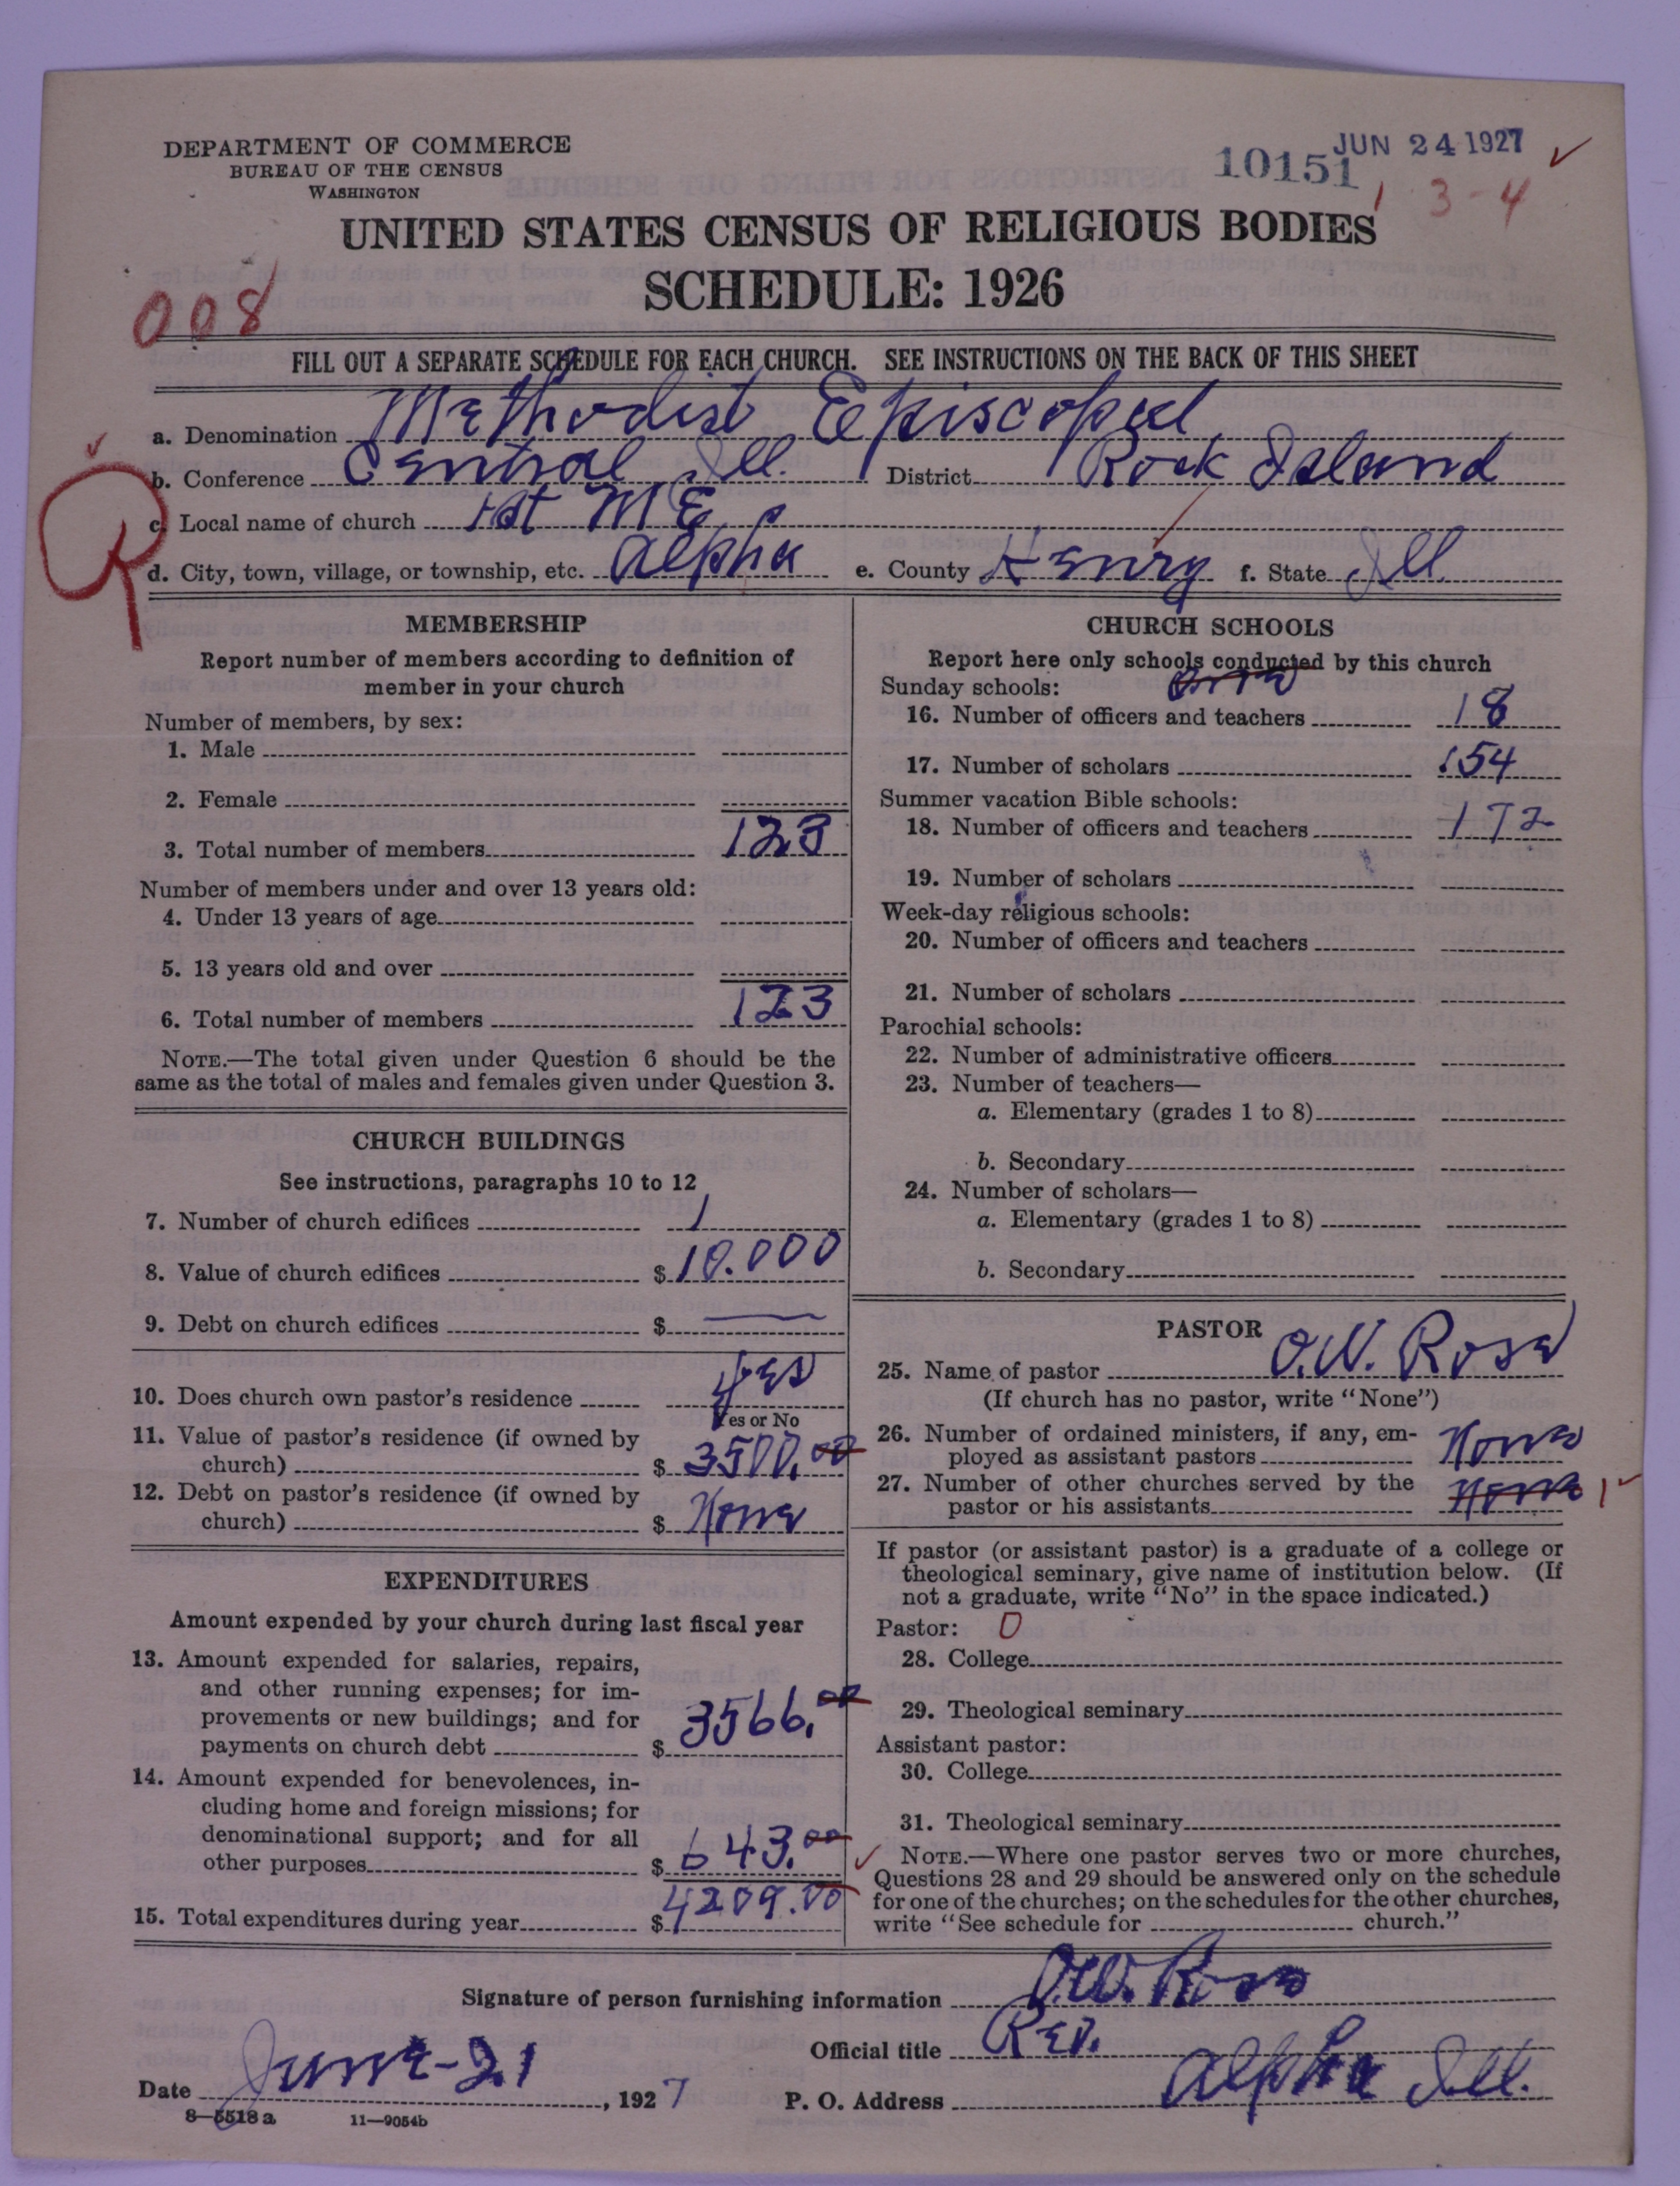 DEPARTMENT OF COMMERCE
BUREAU OF THE CENSUS
WASHINGTON
10151
JUN 24 1927
3-4
UNITED STATES CENSUS OF RELIGIOUS BODIES
SCHEDULE: 1926
008
FILL OUT A SEPARATE SCHEDULE FOR EACH CHURCH. SEE INSTRUCTIONS ON THE BACK OF THIS SHEET
a. Denomination Methodist Episcopal
b. Conference Central Ill. District Rock Island
c. Local name of church 1st M E
d. City, town, village, or township, etc. Alpha e. County Henry f. State Ill.
MEMBERSHIP
Report number of members according to definition of
member in your church
Number of members, by sex:
1. Male
2. Female
3. Total number of members 123
Number of members under and over 13 years old:
4. Under 13 years of age
5. 13 years old and over
6. Total number of members 123
NOTE.—The total given under Question 6 should be the
same as the total of males and females given under Question 3.
CHURCH BUILDINGS
See instructions, paragraphs 10 to 12
7. Number of church edifices 1
8. Value of church edifices $ 10.000
9. Debt on church edifices $ —
10. Does church own pastor's residence yes
Yes or No
11. Value of pastor's residence (if owned by
church) $ 3500.00
12. Debt on pastor's residence (if owned by
church) $ None
EXPENDITURES
Amount expended by your church during last fiscal year
13. Amount expended for salaries, repairs,
and other running expenses; for im-
provements or new buildings; and for
payments on church debt $ 3566.00
14. Amount expended for benevolences, in-
cluding home and foreign missions; for
denominational support; and for all
other purposes $ 643.00
15. Total expenditures during year $ 4209.00
CHURCH SCHOOLS
Report here only schools conducted by this church
Sunday schools:
16. Number of officers and teachers 18
17. Number of scholars 154
Summer vacation Bible schools:
18. Number of officers and teachers 172
19. Number of scholars
Week-day religious schools:
20. Number of officers and teachers
21. Number of scholars
Parochial schools:
22. Number of administrative officers
23. Number of teachers—
a. Elementary (grades 1 to 8)
b. Secondary
24. Number of scholars—
a. Elementary (grades 1 to 8)
b. Secondary
PASTOR
25. Name of pastor O.W. Rose
(If church has no pastor, write "None")
26. Number of ordained ministers, if any, em-
ployed as assistant pastors None
27. Number of other churches served by the
pastor or his assistants None 1
If pastor (or assistant pastor) is a graduate of a college or
theological seminary, give name of institution below. (If
not a graduate, write "No" in the space indicated.)
Pastor: 0
28. College
29. Theological seminary
Assistant pastor:
30. College
31. Theological seminary
NOTE.—Where one pastor serves two or more churches,
Questions 28 and 29 should be answered only on the schedule
for one of the churches; on the schedules for the other churches,
write "See schedule for church."
Signature of person furnishing information O.W. Rose
Official title Rev.
Date June-21, 1927 P. O. Address Alpha Ill.
8—5518 a 11—9054b